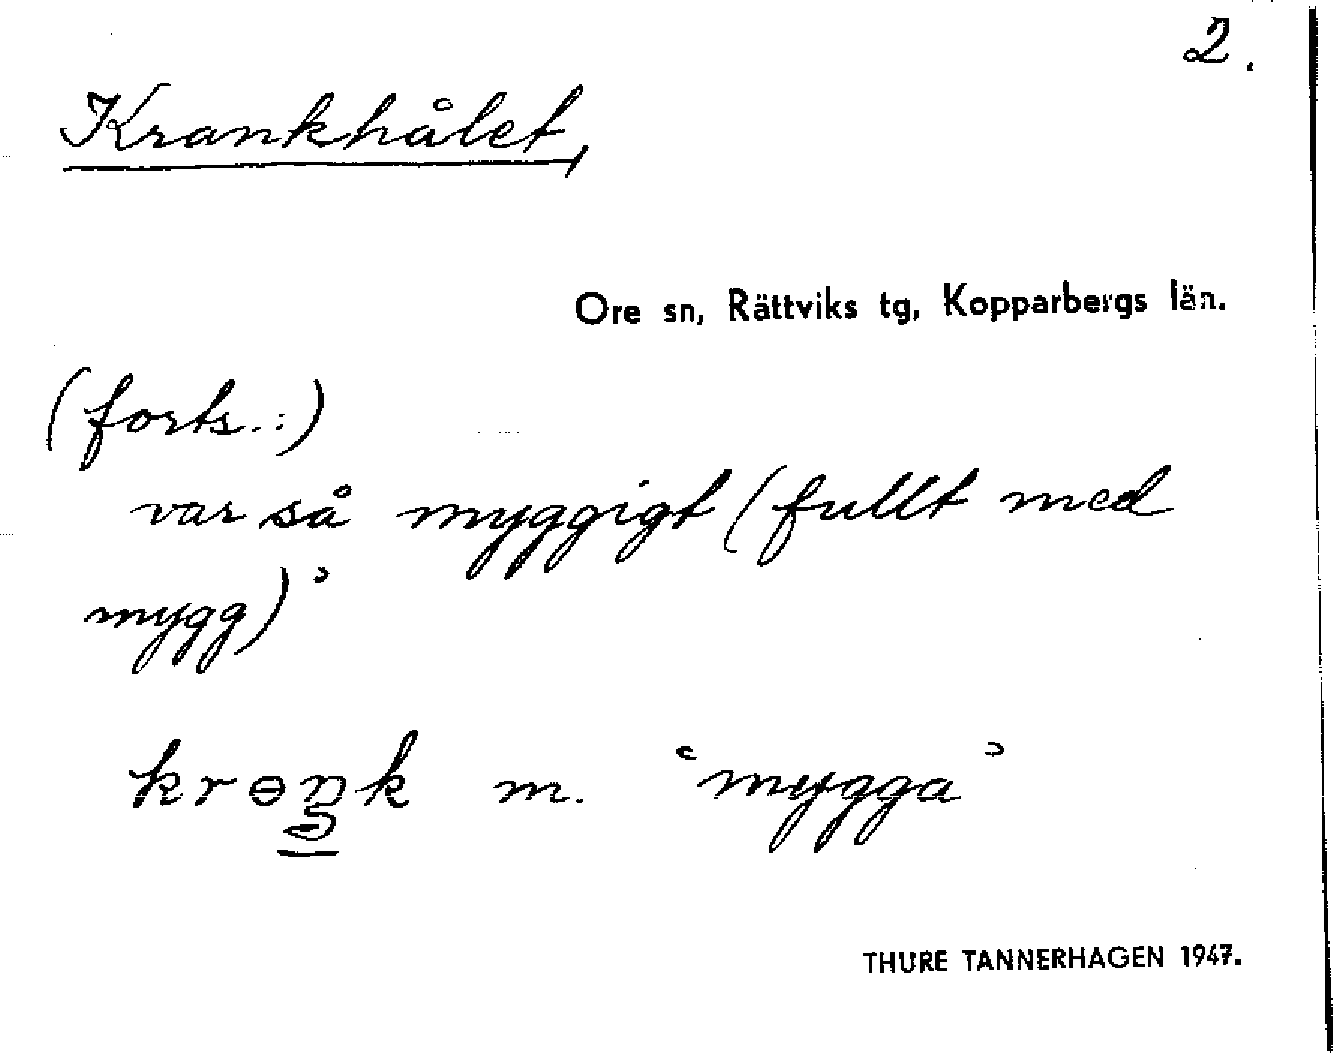 2.
Krankhålet,
Ore sn, Rättviks tg, Kopparbergs län.
(forts.:)
var så myggigt (fullt med
mygg)’
krɵŋk m. ‘mygga’
THURE TANNERHAGEN 1947.